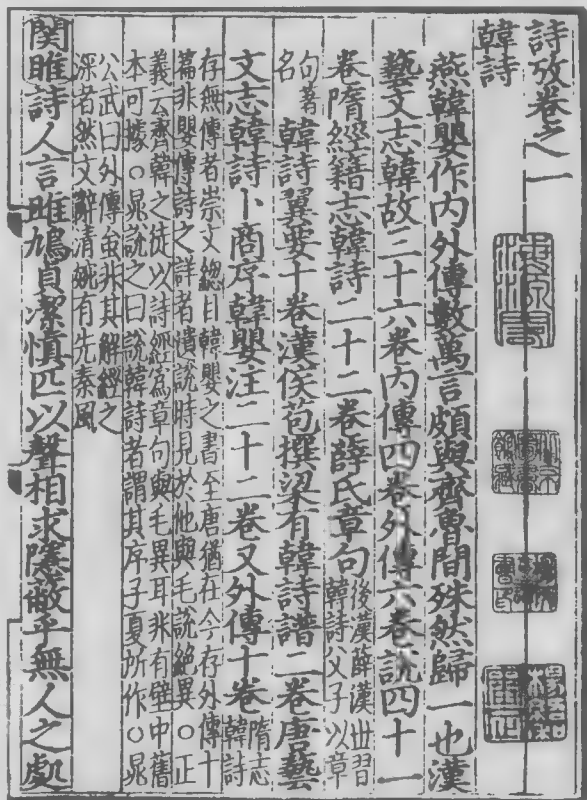 詩攷卷之一
韓詩
燕韓嬰作内外傳數萬言頗與齊魯間殊然歸一也漢
藝文志韓故三十六卷内傳四卷外傳六卷説四十一
卷隋經籍志韓詩二十二卷薛氏章句後漢薛漢世習韓詩父子以章
句著名韓詩翼要十卷漢侯苞撰梁有韓詩譜二卷唐藝
文志韓詩卜商序韓嬰注二十二卷又外傳十卷隋志韓詩
存無傳者崇文總目韓嬰之書至唐猶在今存外傳十
篇非嬰傳詩之詳者遺説時見於他與毛説絶異○正
義云齊韓之徒以詩經爲章句與毛異耳非有壁中舊
本可據○晁説之曰説韓詩者謂其序子夏所作○晁
公武曰外傳虽非其解經之
深者然文辭清婉有先秦風
関雎詩人言雎鳩貞潔慎匹以聲相求隱蔽乎無人之處